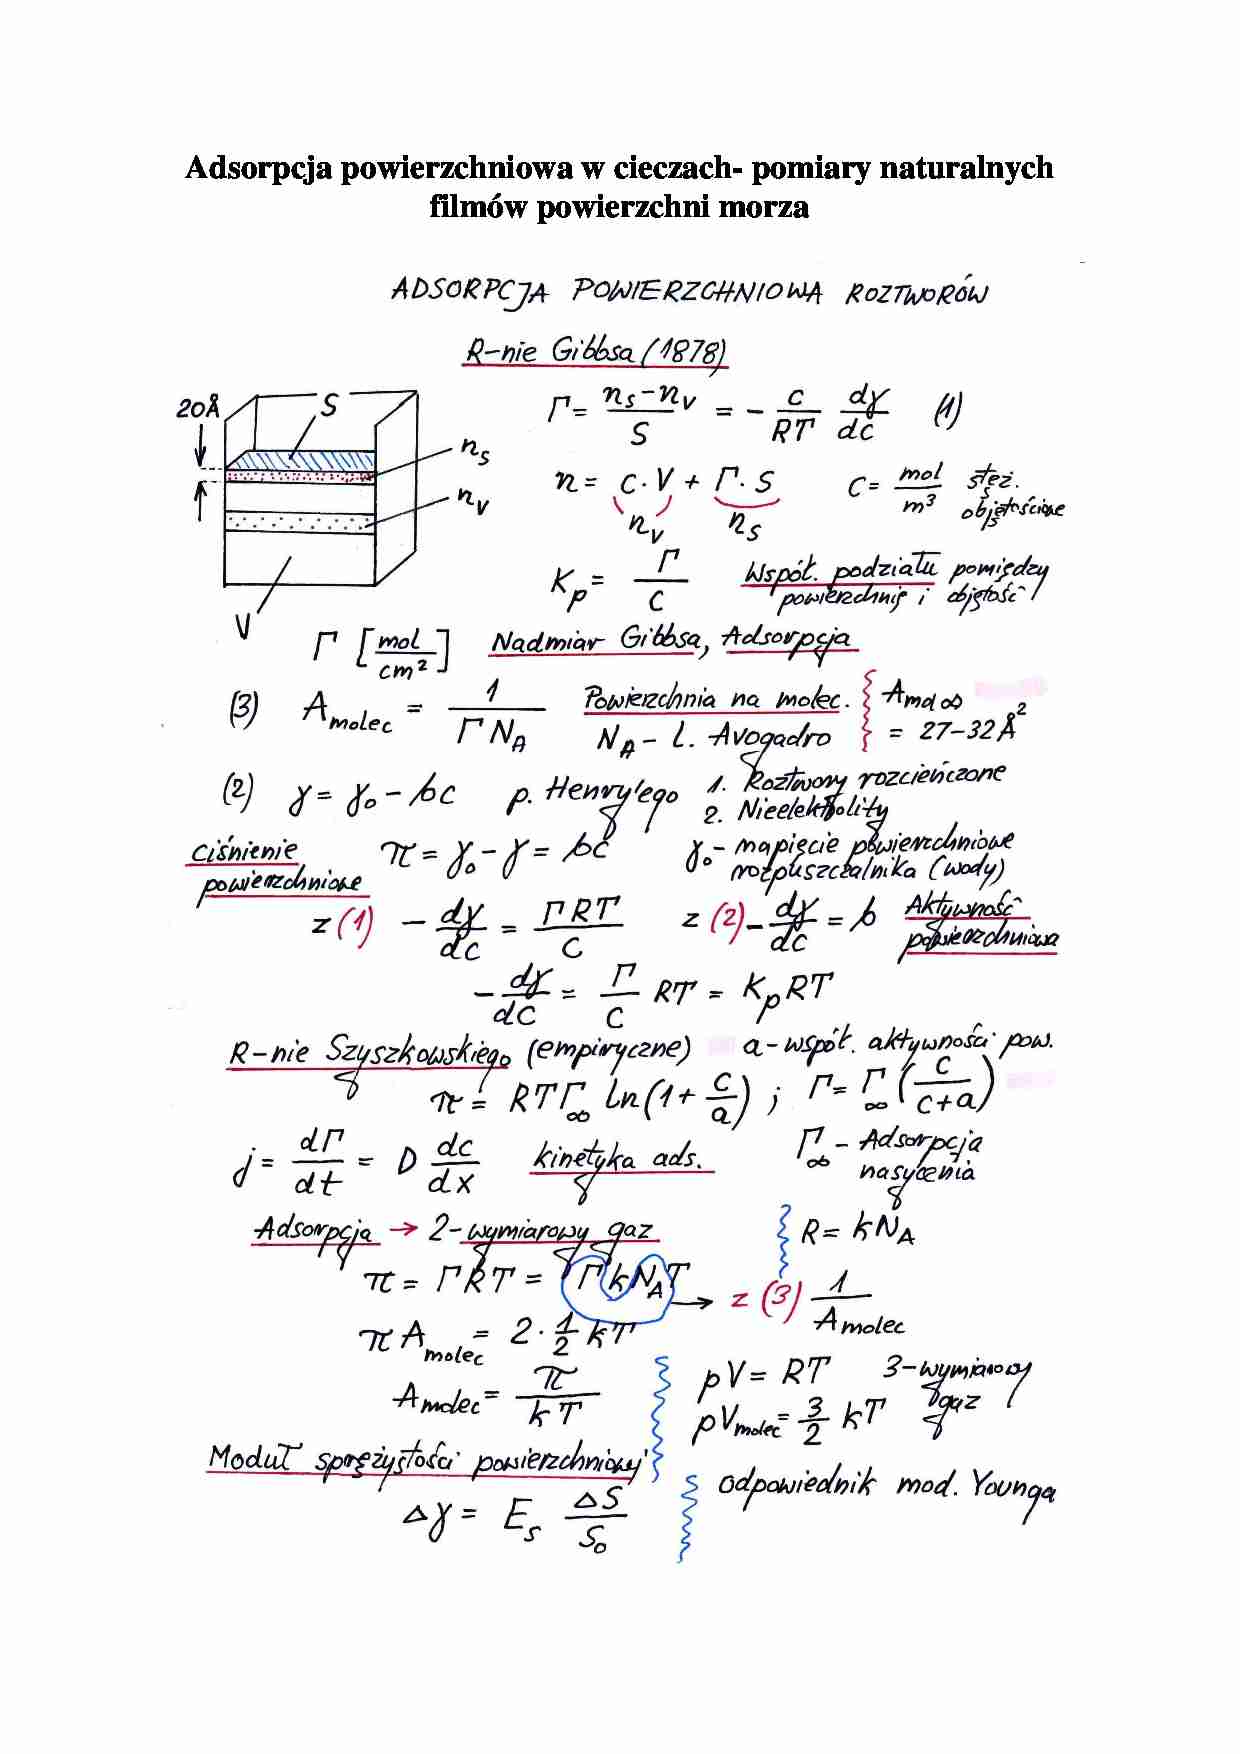 Adsorpcja powierzchniowa w cieczach- pomiary naturalnych
filmów powierzchni morza
ADSORPCJA POWIERZCHNIOWA ROZTWORÓW
R-nie Gibbsa (1878)
20Å S
n_S
n_V
V
Γ = (n_S - n_V)/S = - c/RT dγ/dc (1)
n = c·V + Γ·S C = mol/m³ stęż. objętościowe
n_V n_S
K_p = Γ/c Współ. podziału pomiędzy
powierzchnię i objętość
Γ [mol/cm²] Nadmiar Gibbsa, Adsorpcja
(3) A_molec = 1/(Γ N_A) Powierzchnia na molec. A_mol∞
N_A - L. Avogadro = 27-32 Å²
(2) γ = γ₀ - bc p. Henry'ego 1. Roztwory rozcieńczone
2. Nieelektrolity
ciśnienie powierzchniowe π = γ₀ - γ = bc γ₀ - napięcie powierzchniowe
rozpuszczalnika (wody)
z (1) - dγ/dc = ΓRT/c z (2) - dγ/dc = b Aktywność powierzchniowa
- dγ/dc = Γ/c RT = K_p RT
R-nie Szyszkowskiego (empiryczne) a - współ. aktywności pow.
π = RTΓ∞ ln(1 + c/a) ; Γ = Γ∞ (c/(c+a))
j = dΓ/dt = D dc/dx kinetyka ads. Γ∞ - Adsorpcja
nasycenia
Adsorpcja → 2-wymiarowy gaz R = kN_A
π = ΓRT = ΓkN_AT → z (3) 1/A_molec
πA_molec = 2·1/2 kT
A_molec = π/kT pV = RT 3-wymiarowy gaz
pV_molec = 3/2 kT
Moduł sprężystości powierzchniowej odpowiednik mod. Younga
Δγ = E_s ΔS/S₀